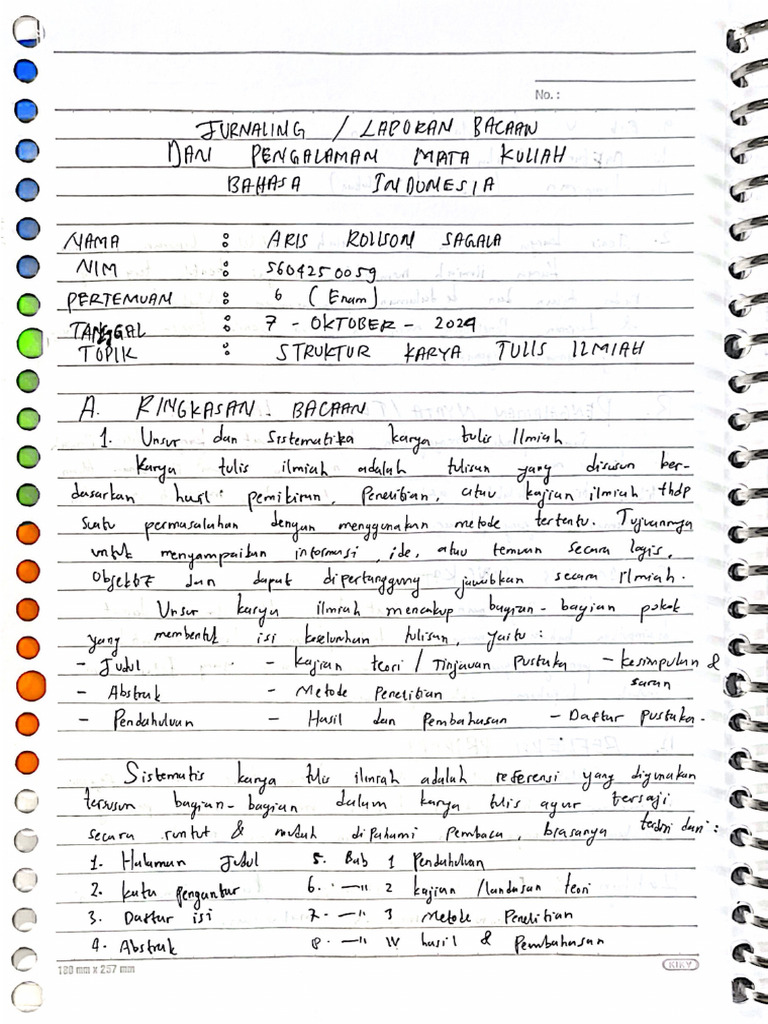 No.:
JURNALING / LAPORAN BACAAN
DAN PENGALAMAN MATA KULIAH
BAHASA INDONESIA
NAMA : ARIS ROLISON SAGALA
NIM : 5604250059
PERTEMUAN : 6 (Enam)
TANGGAL : 7 - OKTOBER - 2024
TOPIK : STRUKTUR KARYA TULIS ILMIAH
A. RINGKASAN BACAAN
1. Unsur dan Sistematika karya tulis Ilmiah
Karya tulis ilmiah adalah tulisan yang disusun ber-
dasarkan hasil pemikiran, Penelitian, atau kajian ilmiah thdp
suatu permasalahan dengan menggunakan metode tertentu. Tujuannya
untuk menyampaikan informasi, ide, atau temuan secara logis,
Objektif dan dapat dipertanggung jawabkan secara Ilmiah.
Unsur karya ilmiah mencakup bagian-bagian pokok
yang membentuk isi keseluruhan tulisan, yaitu :
- Judul - kajian teori / Tinjauan Pustaka - kesimpulan & saran
- Abstrak - Metode Penelitian
- Pendahuluan - Hasil dan Pembahasan - Daftar pustaka.
Sistematis karya tulis ilmiah adalah referensi yang digunakan
tersusun bagian-bagian dalam karya tulis agar tersaji
secara runtut & mudah dipahami pembaca, biasanya terdiri dari :
1. Halaman Judul 5. Bab 1 Pendahuluan
2. kata pengantar 6. —" 2 kajian / landasan teori
3. Daftar isi 7. —" 3 Metode Penelitian
4. Abstrak 8. —" IV hasil & Pembahasan
180 mm x 257 mm
KIKY